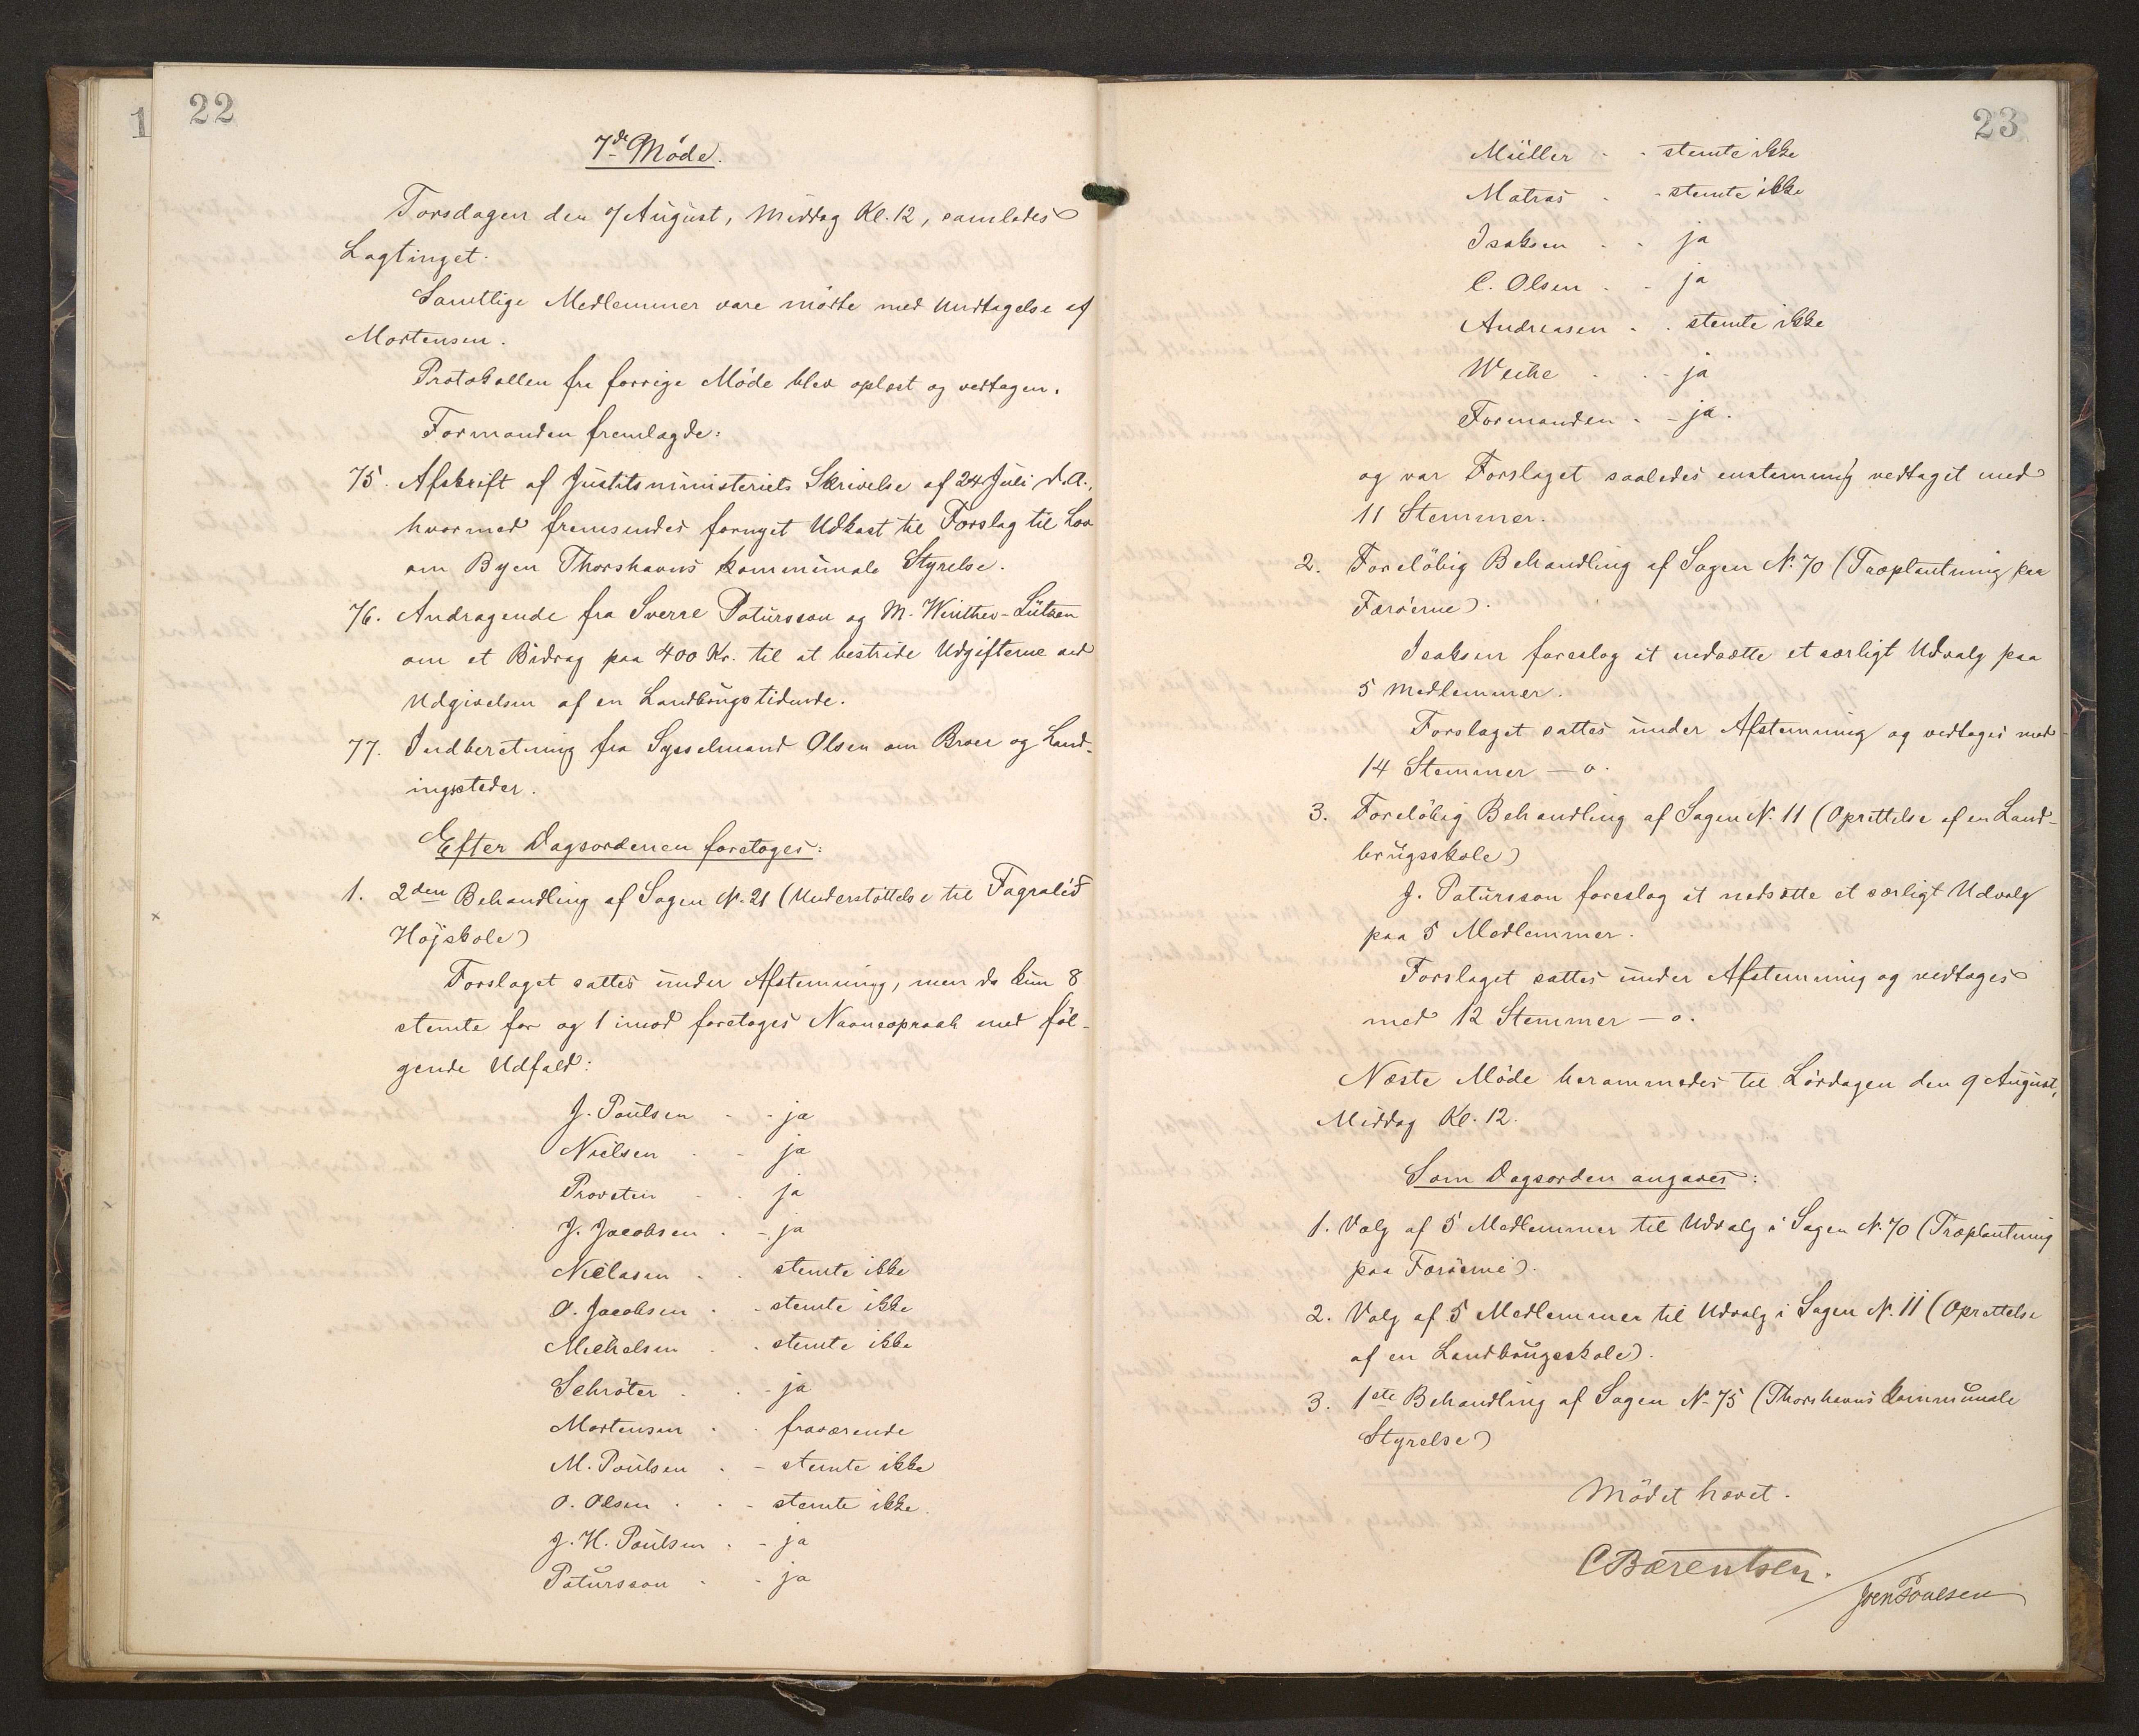 1
22
7de Møde.
Torsdagen den 7 August, Middag Kl. 12, samledes
Lagtinget.
Samtlige Medlemmer vare mødte med Undtagelse af
Mortensen.
Protokollen fra forrige Møde blev oplæst og vedtagen.
Formanden fremlagde:
75. Afskrift af Justitsministeriets Skrivelse af 24 Juli d.A.,
hvormed fremsendes fornyet Udkast til Forslag til Lov
om Byen Thorshavns kommunale Styrelse.
76. Andragende fra Sverre Patursson og M. Winther-Lützen
om et Bidrag paa 400 Kr. til at bestride Udgifterne ved
Udgivelsen af en Landbrugstidende.
77. Indberetning fra Sysselmand Olsen om Broer og Land-
ingssteder.
Efter Dagsordenen foretoges:
1. 2den Behandling af Sagen N. 21 (Understøttelse til Fagralid
Højskole)
Forslaget sattes under Afstemning, men da kun 8
stemte for og 1 imod foretoges Navneopraab med føl-
gende Udfald:
J. Poulsen - - ja
Nielsen - - ja
Provsten - - ja
J. Jacobsen - - ja
Niclasen - - stemte ikke
O. Jacobsen - - stemte ikke
Michelsen - - stemte ikke
Schrøter - - ja
Mortensen - - fraværende
M. Poulsen - - stemte ikke
O. Olsen - - stemte ikke.
J. H. Poulsen - - ja
Patursson - - ja
23
Müller - - stemte ikke
Matras - - stemte ikke
Isaksen - - ja
C. Olsen - - ja
Andreasen - - stemte ikke
Weihe - - ja
Formanden - - ja.
og var Forslaget saaledes enstemmig vedtaget med
11 Stemmer.
2. Foreløbig Behandling af Sagen N. 70 (Træplantning paa
Færøerne).
Isaksen foreslog at nedsætte et særligt Udvalg paa
5 Medlemmer.
Forslaget sattes under Afstemning og vedtoges med
14 Stemmer — 0.
3. Foreløbig Behandling af Sagen N. 11 (Oprettelse af en Land-
brugsskole)
J. Patursson foreslog at nedsætte et særligt Udvalg
paa 5 Medlemmer.
Forslaget sattes under Afstemning og vedtoges
med 12 Stemmer — 0.
Næste Møde berammedes til Lørdagen den 9 August,
Middag Kl. 12.
Som Dagsorden angaves:
1. Valg af 5 Medlemmer til Udvalg i Sagen N. 70 (Træplantning
paa Færøerne).
2. Valg af 5 Medlemmer til Udvalg i Sagen N. 11 (Oprettelse
af en Landbrugsskole).
3. 1ste Behandling af Sagen N. 75 (Thorshavns kommunale
Styrelse)
Mødet hævet.
C Bærentsen.
Joen Poulsen